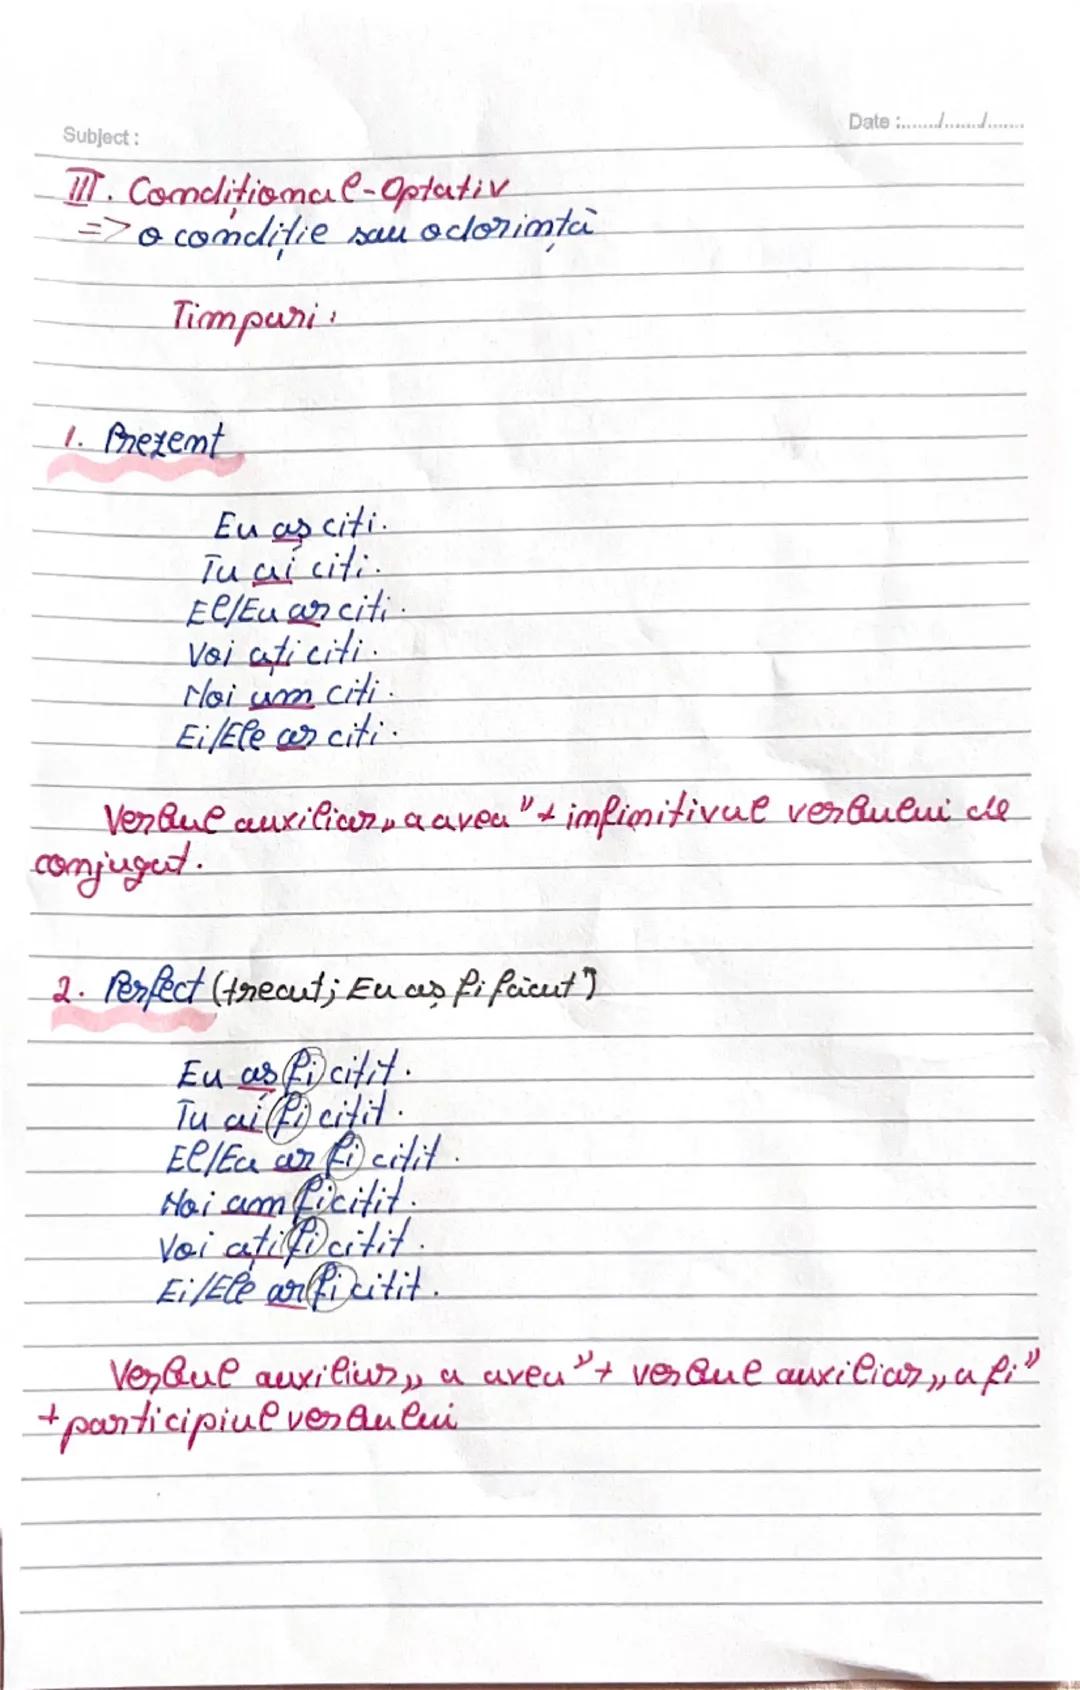 Subject :
Date :......./......./.......
III. Condițional-Optativ
=> o condiție sau o dorință
Timpuri :
1. Prezent
Eu aș citi.
Tu ai citi.
El/Ea ar citi.
Voi ați citi.
Noi am citi.
Ei/Ele ar citi.
Verbul auxiliar „a avea" + infinitivul verbului de
conjugat.
2. Perfect (trecut; Eu aș fi făcut")
Eu aș fi citit.
Tu ai fi citit.
El/Ea ar fi citit.
Noi am fi citit.
Voi ați fi citit.
Ei/Ele ar fi citit.
Verbul auxiliar „a avea" + verbul auxiliar „a fi"
+ participiul verbului